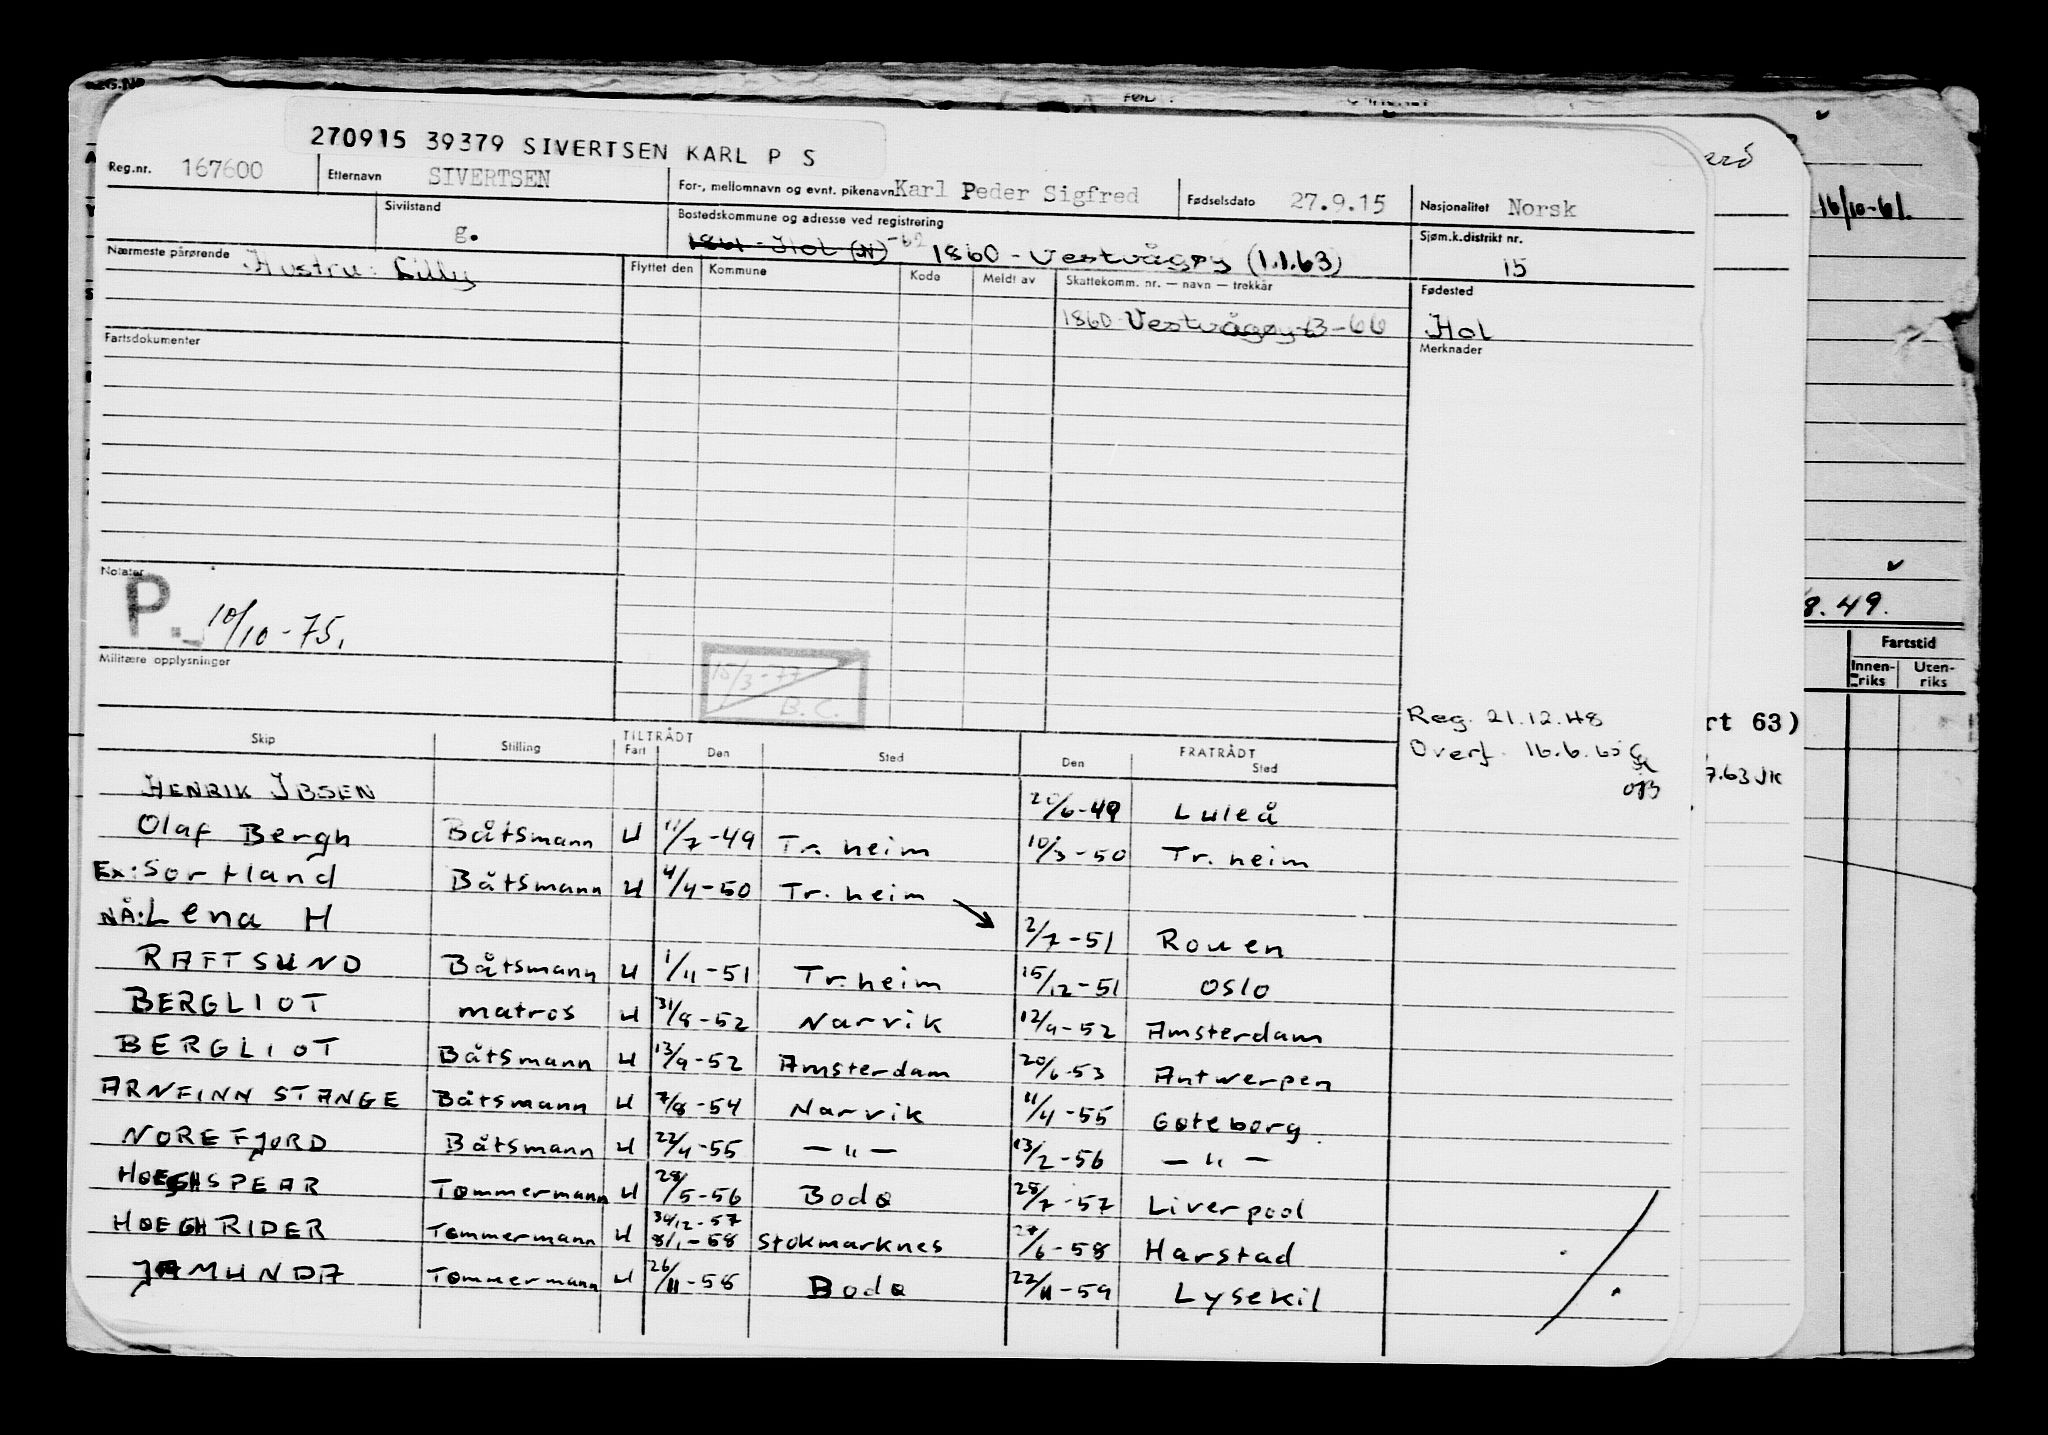 270915 39379 SIVERTSEN KARL P S
Reg.nr. 167600 Etternavn SIVERTSEN For-, mellomnavn og evnt. pikenavn Karl Peder Sigfred Fødselsdato 27.9.15 Nasjonalitet Norsk
Sivilstand g. Bostedskommune og adresse ved registrering 1861 - Hol (N) -62 1860 - Vestvågøy (1.1.63) Sjøm.k.distrikt nr. 15
Nærmeste pårørende Hustru: Lilly Flyttet den Kommune Kode Meldt av Skattekomm. nr. — navn — trekkår Fødested
1860 Vestvågøy 63-66 Hol
Fartsdokumenter Merknader
Notater
P. 10/10-75.
Militære opplysninger
15/3-77
B.C.
Reg. 21.12.48
Overf. 16.6.65
Skip Stilling TILTRÅDT Fart Den Sted FRATRÅDT Den Sted
HENRIK IBSEN 20/6-49 Luleå
Olaf Bergh Båtsmann U 11/7-49 Tr.heim 10/3-50 Tr.heim
Ex: Sortland Båtsmann U 4/4-50 Tr.heim
NÅ: Lena H 2/7-51 Rouen
RAFTSUND Båtsmann U 1/11-51 Tr.heim 15/12-51 Oslo
BERGLIOT matros U 31/8-52 Narvik 12/9-52 Amsterdam
BERGLIOT Båtsmann U 13/9-52 Amsterdam 20/6-53 Antwerpen
ARNFINN STANGE Båtsmann U 7/8-54 Narvik 11/4-55 Gøteborg
NOREFJORD Båtsmann U 22/4-55 — " — 13/2-56 — " —
HØEGH SPEAR Tømmermann U 28/5-56 Bodø 28/7-57 Liverpool
HØEGH RIDER Tømmermann U 30/12-57 8/1-58 Stokmarknes 27/6-58 Harstad
JAMUNDA Tømmermann U 26/11-58 Bodø 22/11-59 Lysekil
16/10-61.
8.49.
Fartstid
Innenriks Utenriks
rt 63)
7.63 JK